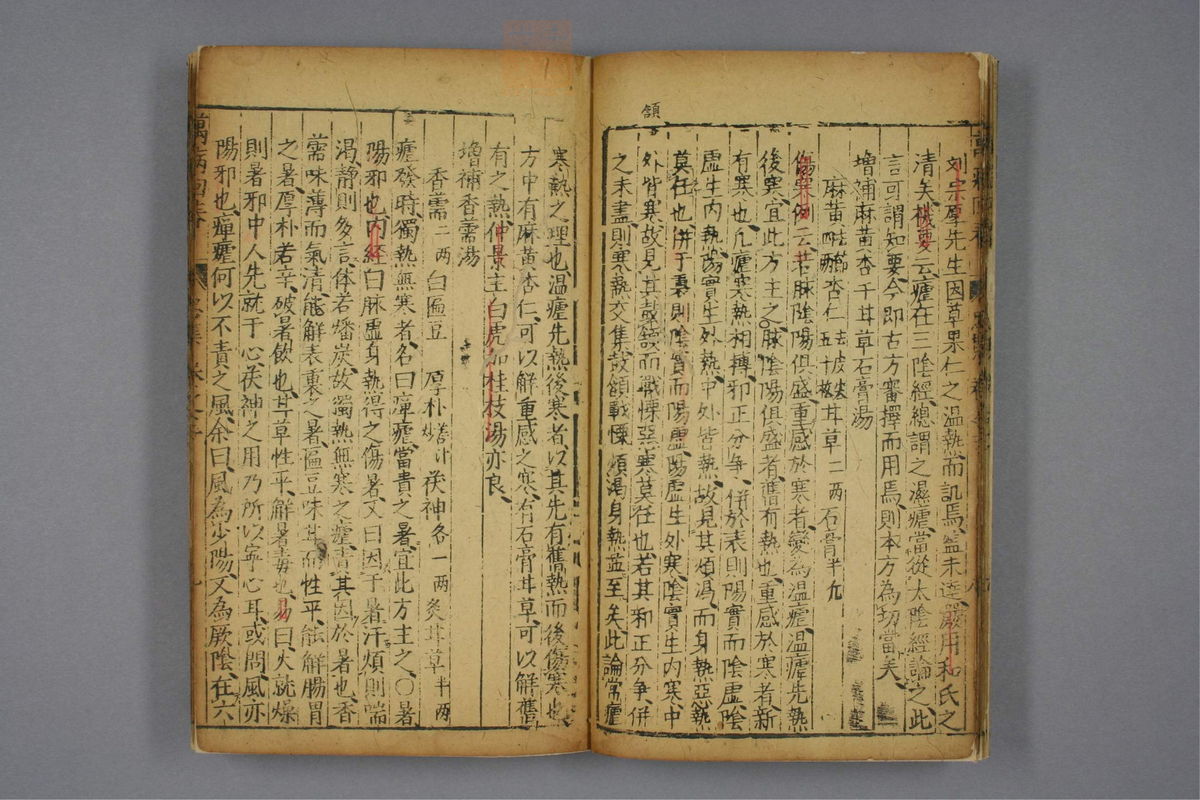 額
劉宗厚先生因草果仁之溫熱而訊焉盖未逹嚴用和氏之
清矣機要云瘧在三陰經總謂之濕瘧當從太陰經論之此
言可謂知要今即古方審擇而用焉則本方為切當矣
增補麻黃杏子甘草石膏湯
麻黃四兩去節 杏仁五十枚去皮尖 甘草二兩 石膏半斤
傷寒例云若脉陰陽俱盛重感於寒者變為溫瘧溫瘧先熱
後寒宜此方主之脉陰陽俱盛者舊有熱也重感於寒者新
有寒也凡瘧寒熱相搏邪正分爭併於表則陽實而陰虛陰
虛生內熱陽實生外熱中外皆熱故見其煩渴而身熱惡熱
莫任也併于裏則陰實而陽虛陽虛生外寒陰實生內寒中
外皆寒故見其鼓頷而戰慄惡寒莫任也若其邪正分爭併
之未盡則寒熱交集鼓頷戰慄煩渴身熱並至矣此論常瘧
寒熱之理也溫瘧先熱後寒者以其先有舊熱而後傷寒也
方中有麻黃杏仁可以解重感之寒有石膏甘草可以解舊
有之熱仲景主白虎加桂枝湯亦良
增補香薷湯
香薷二兩 白匾豆 厚朴薑汁炒 茯神各一兩 炙甘草半兩
瘧發時獨熱無寒者名曰癉瘧當責之暑宜此方主之○暑
陽邪也內經曰脉虛身熱得之傷暑又曰因于暑汗煩則喘
渴靜則多言体若燔炭故獨熱無寒之瘧責其因於暑也香
薷味薄而氣清能解表裏之暑匾豆味甘而性平能解腸胃
之暑厚朴若辛破暑飲也甘草性平解暑毒也易曰火就燥
則暑邪中人先就于心茯神之用乃所以寧心耳或問風亦
陽邪也癉瘧何以不責之風余曰風為少陽又為厥陰在六